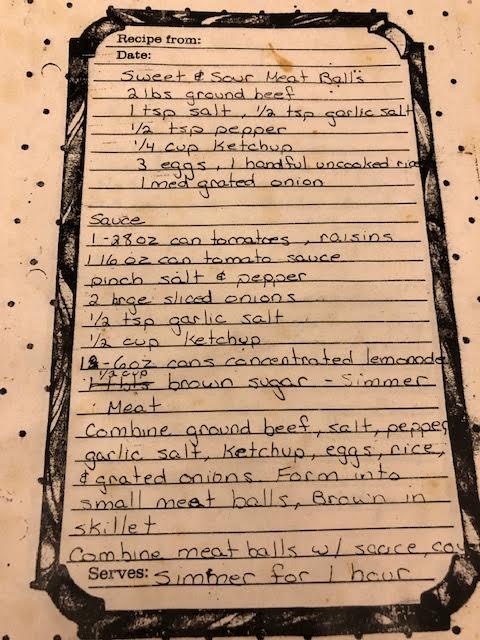 Recipe from:
Date:
Sweet & Sour Meat Balls
2 lbs ground beef
1 tsp salt, 1/2 tsp garlic salt
1/2 tsp pepper
1/4 cup Ketchup
3 eggs, 1 handful uncooked rice
1 med grated onion
Sauce
1-28oz can tomatoes, raisins
1 16 oz can tomato sauce
pinch salt & pepper
2 large sliced onions
1/2 tsp garlic salt
1/2 cup Ketchup
1-6oz cans concentrated lemonade
1/2 cup
brown sugar - Simmer
Meat
Combine ground beef, salt, pepper,
garlic salt, Ketchup, eggs, rice,
& grated onions. Form into
small meat balls, Brown in
skillet
Combine meat balls w/ sauce,
Serves: Simmer for 1 hour